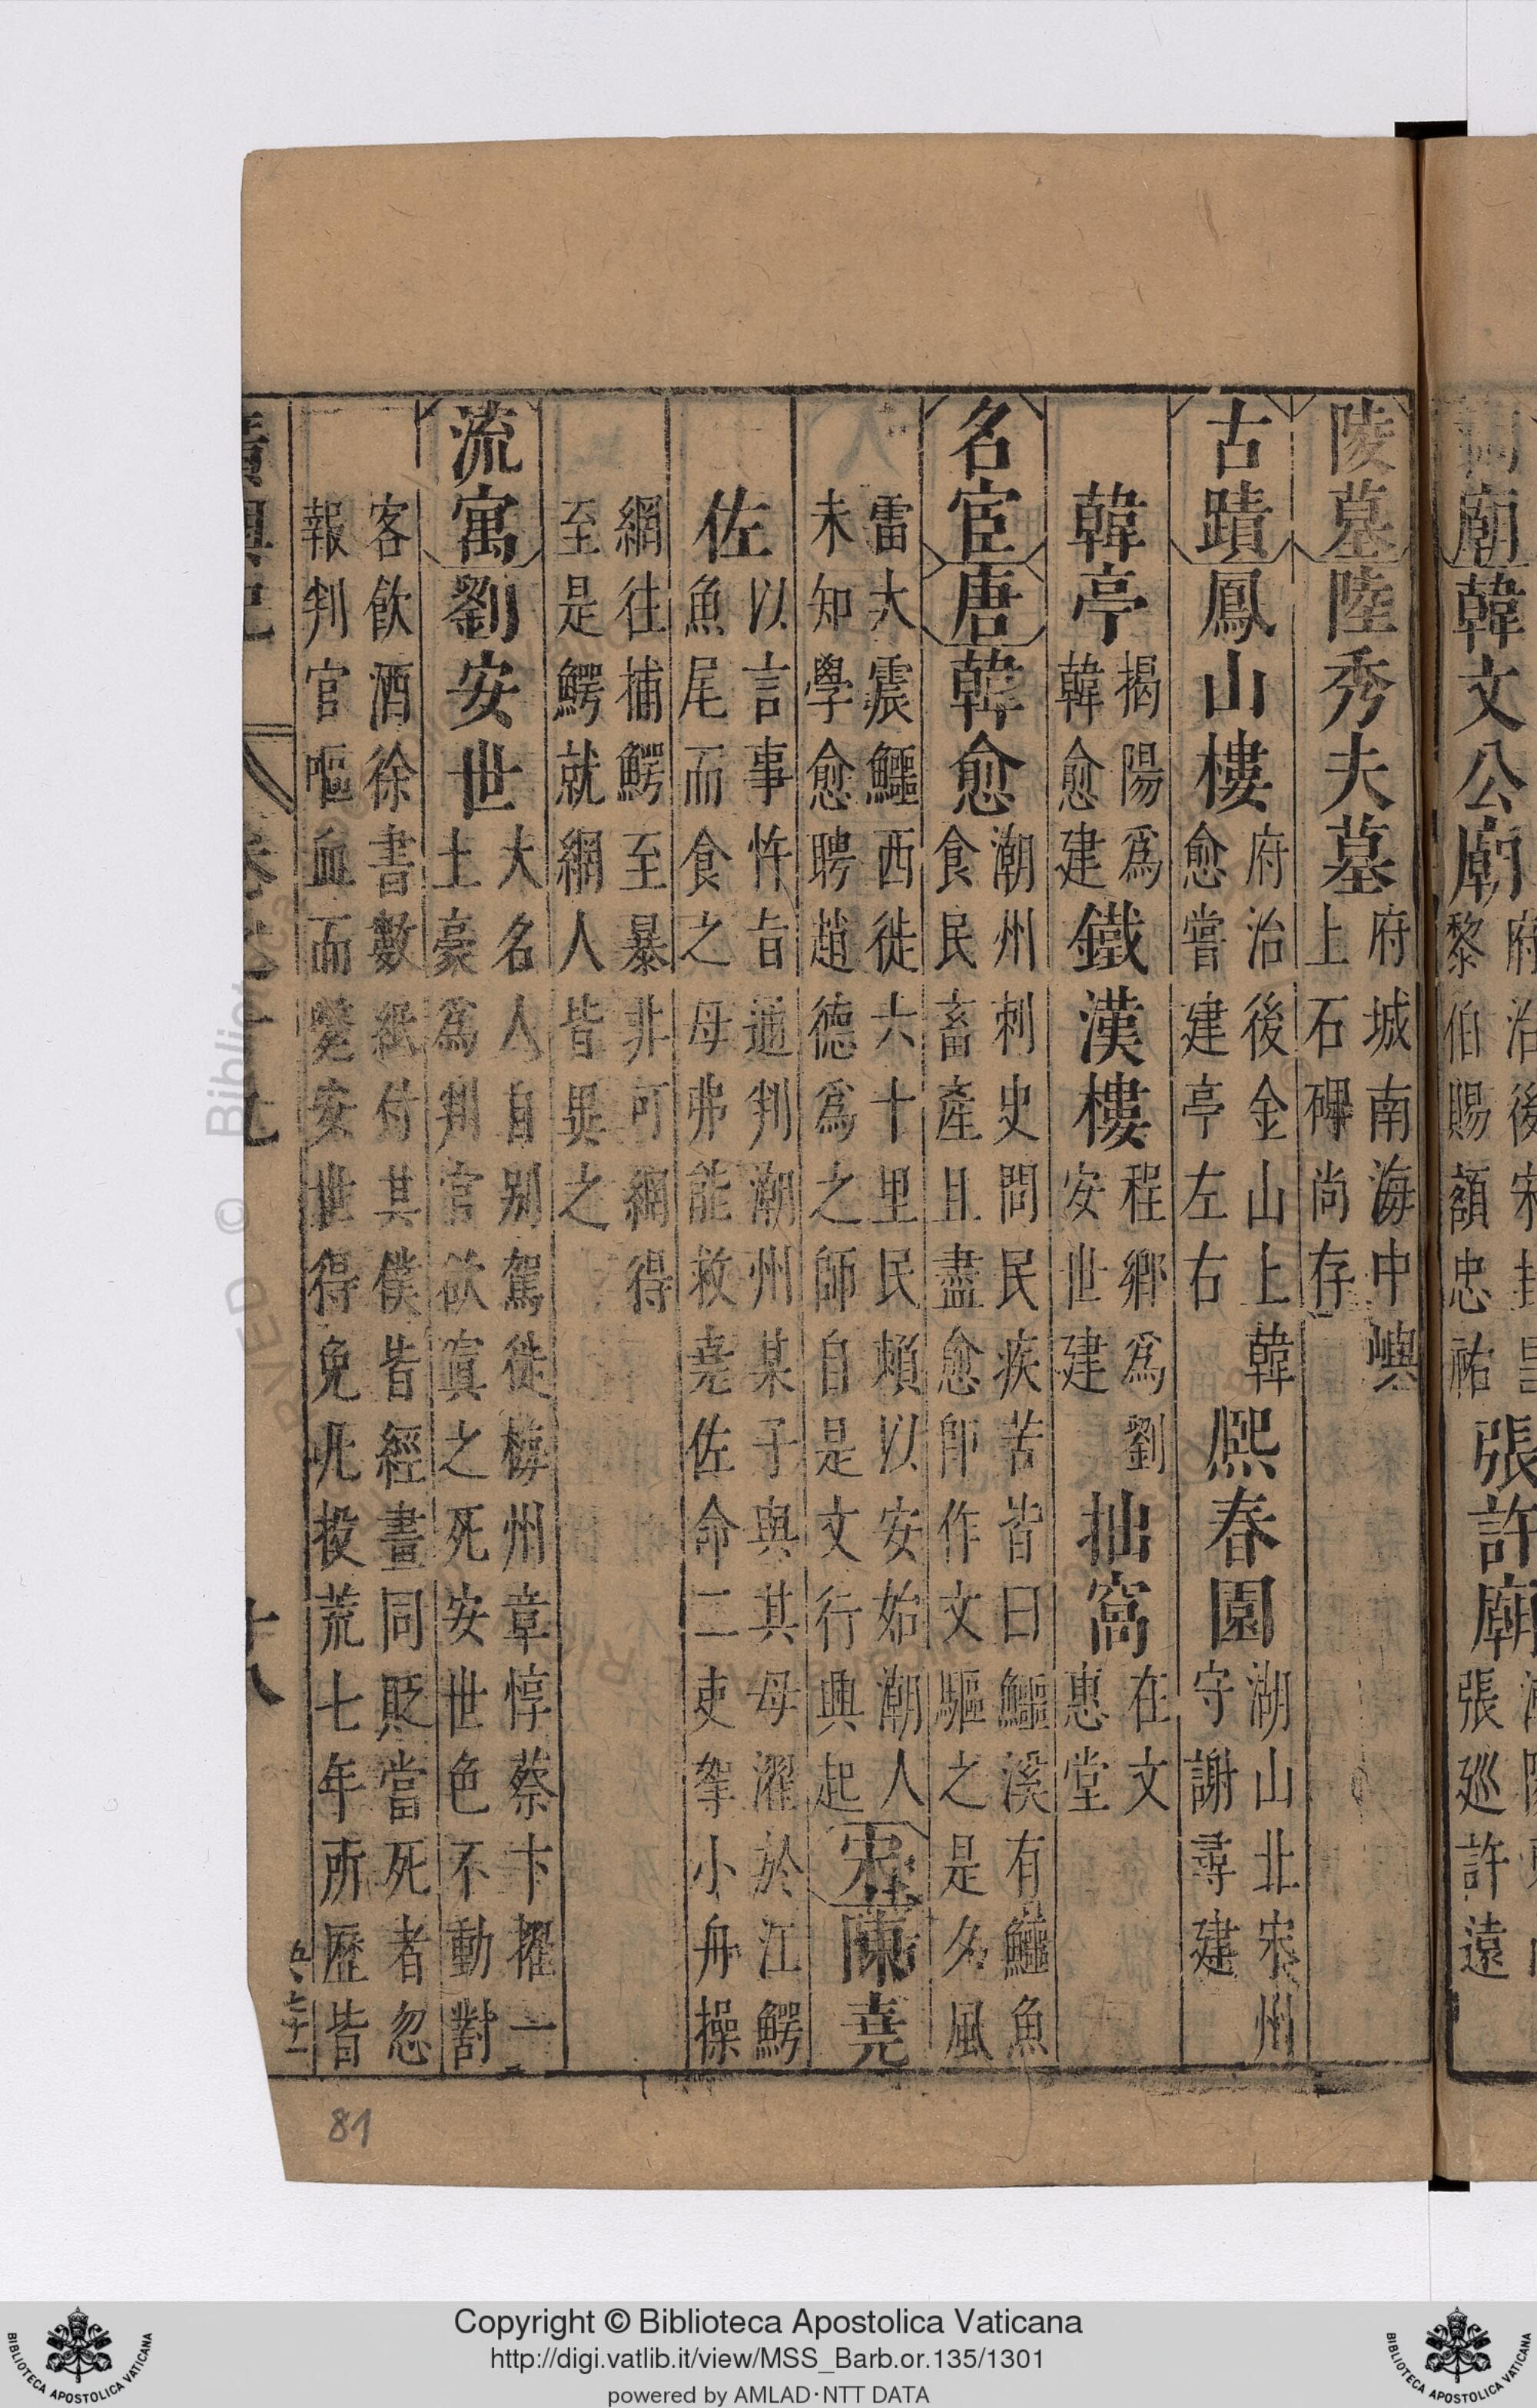 廟韓文公廟
黎伯賜額忠祐
張許廟
張廵許遠
陵墓陸秀夫墓
府城南海中嶼
上石碑尚存
古蹟鳳山樓
府治後金山上韓
愈嘗建亭左右
熈春園
湖山北宋州
守謝尋建
韓亭
揭陽爲
韓愈建
鐵漢樓
程鄉爲劉
安世建
拙窩
在文
惠堂
名宦唐韓愈
潮州刺史問民疾苦皆曰鱷溪有鱷魚
食民畜產且盡愈卽作文驅之是夕風
雷大震鱷西徙六十里民賴以安始潮人
未知學愈聘趙德爲之師自是文行興起
宋陳堯
佐
以言事忤旨通判潮州某子與其母濯於江鰐
魚尾而食之母弗能救堯佐命二吏拏小舟操
網往捕鰐至暴非可網得
至是鰐就網人皆異之
流寓劉安世
大名人自别駕徙梅州章惇蔡卞擢一
土豪爲判官欲寘之死安世色不動對
客飲酒徐書數紙付其僕皆經畫同貶當死者忽
報判官嘔血而斃安世得免凡投荒七年所歷皆
十八
81
Copyright © Biblioteca Apostolica Vaticana
http://digi.vatlib.it/view/MSS_Barb.or.135/1301
powered by AMLAD·NTT DATA
BIBLIOTECA APOSTOLICA VATICANA
BIBLIOTECA APOSTOLICA VATICANA